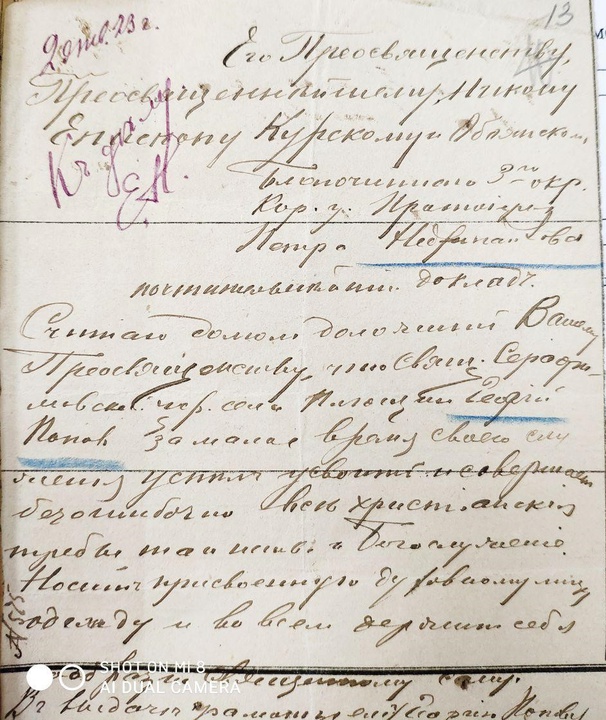 13
2 окт. 23 г.
Его Преосвященству,
Преосвященнѣйшему,
Епископу Курскому и Обоянском.
Къ дѣлу
Благочиннаго 3-го окр.
Кор. у. Протоіерея
Петра
почтительнѣйш. докладъ.
Считаю долгом доложить Вашему
Преосвященству, что Свящ. Серафи-
мовской цер. села Плющин Георгій
Попов за малое время своего слу
женія успѣлъ усвоить и совершает
безошибочно всѣ христіанскія
требы так и Богослуженіе.
Носитъ присвоенную духовному лицу
одежду и во всем держит себя
SHOT ON MI 8
AI DUAL CAMERA